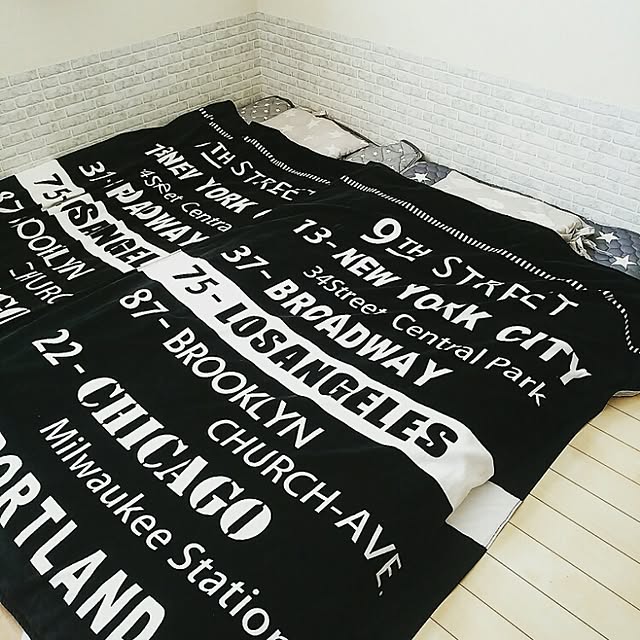 7TH STREET
NEW YORK
34Street Centra
BROADWAY
75- LOSANGEL
87
9TH STREET
13- NEW YORK CITY
34Street Central Park
37- BROADWAY
75- LOSANGELES
87- BROOKLYN
CHURCH-AVE.
22- CHICAGO
Milwaukee Station
PORTLAND